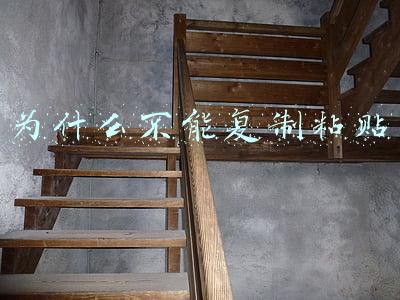 为什么不能复制粘贴